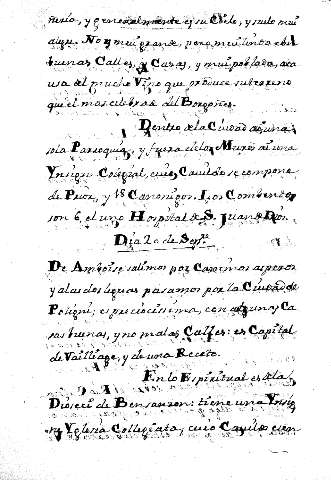 y generalmente es su Cielo, y suelo mui
No es mui grande, pero mui linda con
buenas Calles, y Casas, y mui poblada, a ca
usa del mucho Vino que produce su terreno
que el mas celebrado del Borgoña.
Dentro de la Ciudad ai una
sola Parroquia, y fuera de los Muros ai una
Ynsigne Colegial, cuio Cavildo se compone
de Prior, y Canonigos. Los Combentos
son 6, el uno Hospital de S. Juan de Dios.
Dia 20 de Sepre.
De salimos por Caminos asperos
y a las dos leguas pasamos por la Ciudad de
Poligni; es preciocisima, con algunas Ca
sas buenas, y no malas Calles: es Capital
de Vailliage, y de una Receta.
En lo Espiritual es de la
Diocesi de Bensanzon: tiene una Ynsig
ne Yglesia Collegiata, cuio Cavildo